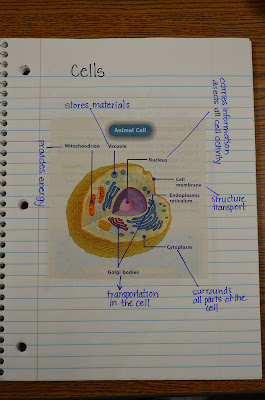 Cells
stores materials
carries information
directs all cell activity
Animal Cell
Mitochondrion
Vacuole
Nucleus
provides energy
Cell
membrane
Endoplasmic
reticulum
structure
transport
Cytoplasm
Golgi bodies
transportation
in the cell
surrounds
all parts of the
cell